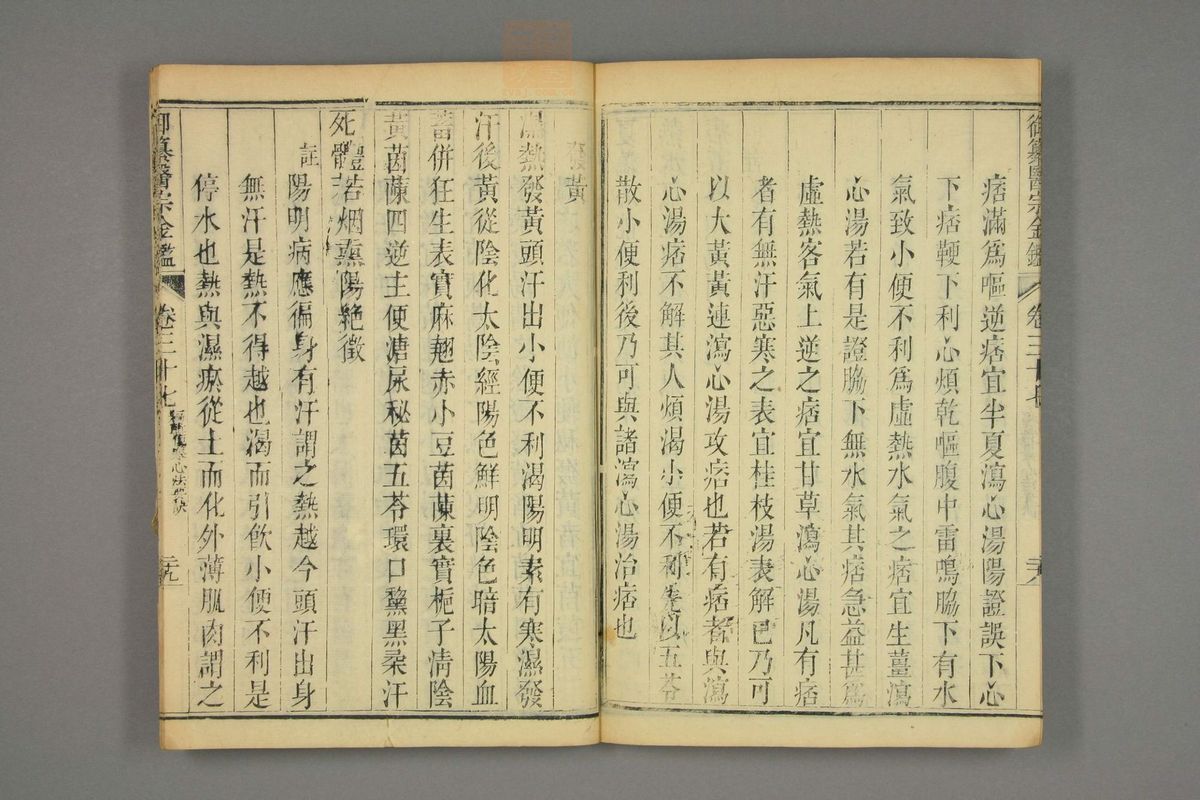 御纂醫宗金鑑 卷三十七 二十八
痞滿爲嘔逆痞宜半夏瀉心湯陽證誤下心
下痞鞕下利心煩乾嘔腹中雷鳴脇下有水
氣致小便不利爲虛熱水氣之痞宜生薑瀉
心湯若有是證脇下無水氣其痞急益甚爲
虛熱客氣上逆之痞宜甘草瀉心湯凡有痞
者有無汗惡寒之表宜桂枝湯表解已乃可
以大黃黃連瀉心湯攻痞也若有痞者與瀉
心湯痞不解其人煩渴小便不利先以五苓
散小便利後乃可與諸瀉心湯治痞也
發黃
濕熱發黃頭汗出小便不利渴陽明素有寒濕發
汗後黃從陰化太陰經陽色鮮明陰色暗太陽血
蓄併狂生表實麻翹赤小豆茵蔯裏實梔子清陰
黃茵蔯四逆主便溏尿秘茵五苓環口黧黑柔汗
死體若烟熏陽絶徵
註陽明病應徧身有汗謂之熱越今頭汗出身
無汗是熱不得越也渴而引飲小便不利是
停水也熱與濕瘀從土而化外薄肌肉謂之
御纂醫宗金鑑 卷三十七 傷寒心法要訣 二十九